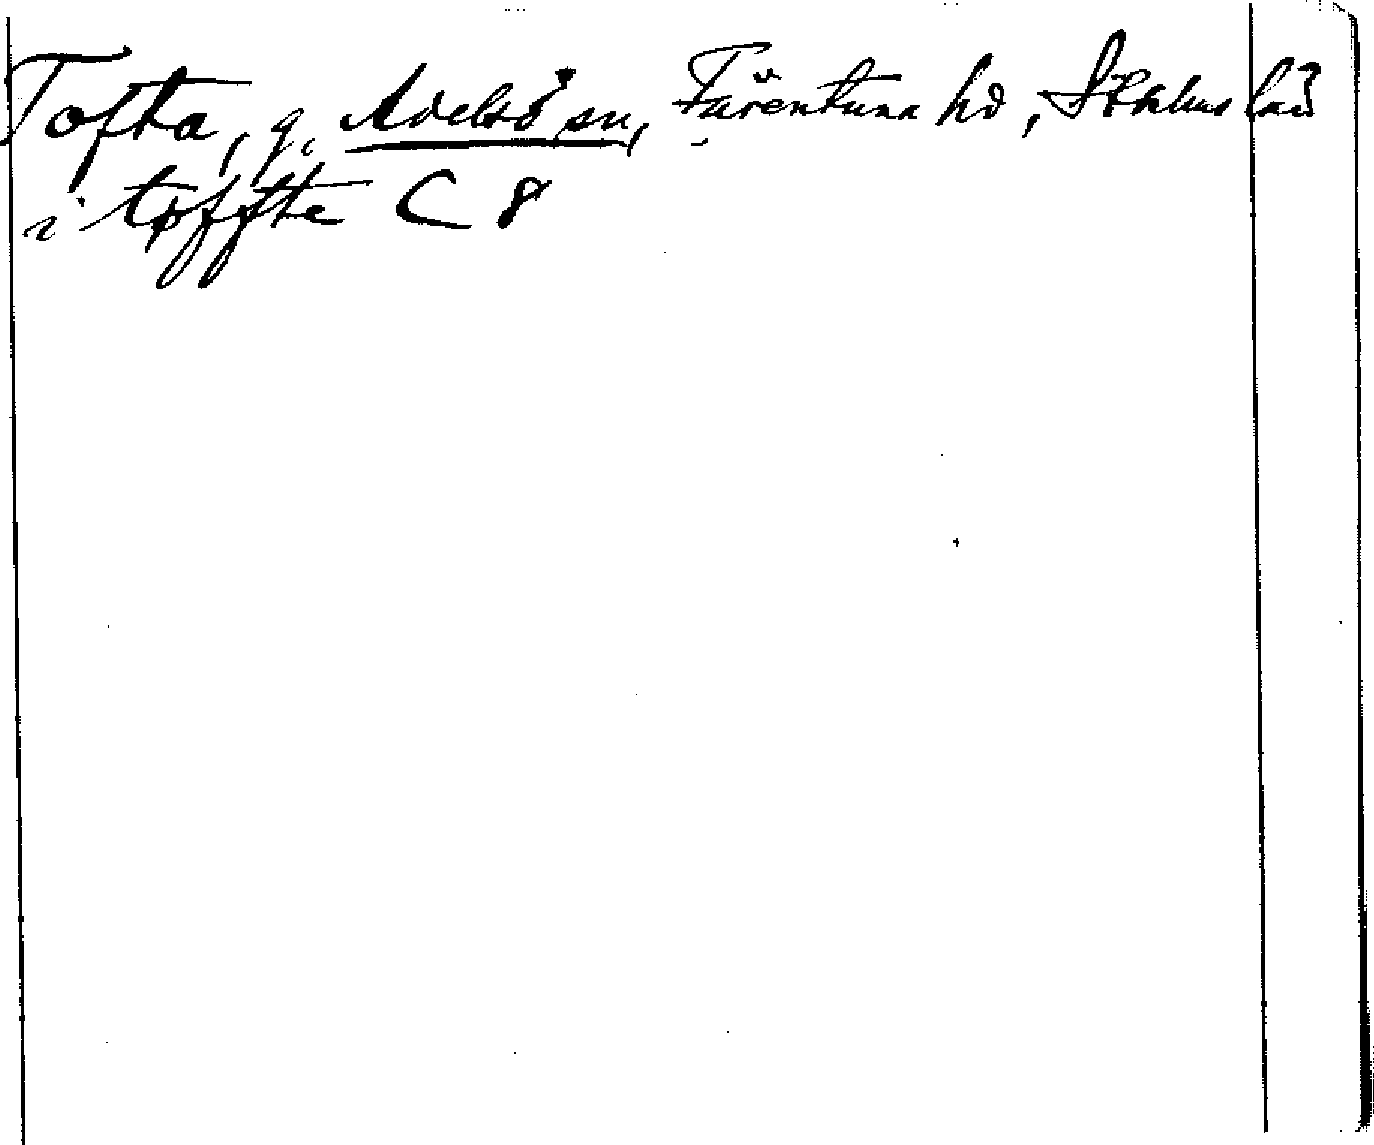 Tofta, g. Adelsö sn, Färentuna hd, Sthlms län
i tofte C 8